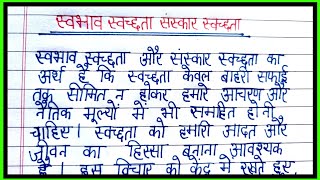 स्वभाव स्वच्छता संस्कार स्वच्छता
स्वभाव स्वच्छता और संस्कार स्वच्छता का
अर्थ है कि स्वच्छता केवल बाहरी सफाई
तक सीमित न होकर हमारे आचरण और
नैतिक मूल्यों में भी समाहित होनी
चाहिए। स्वच्छता को हमारी आदत और
जीवन का हिस्सा बनाना आवश्यक
है। इस विचार को केंद्र में रखते हुए